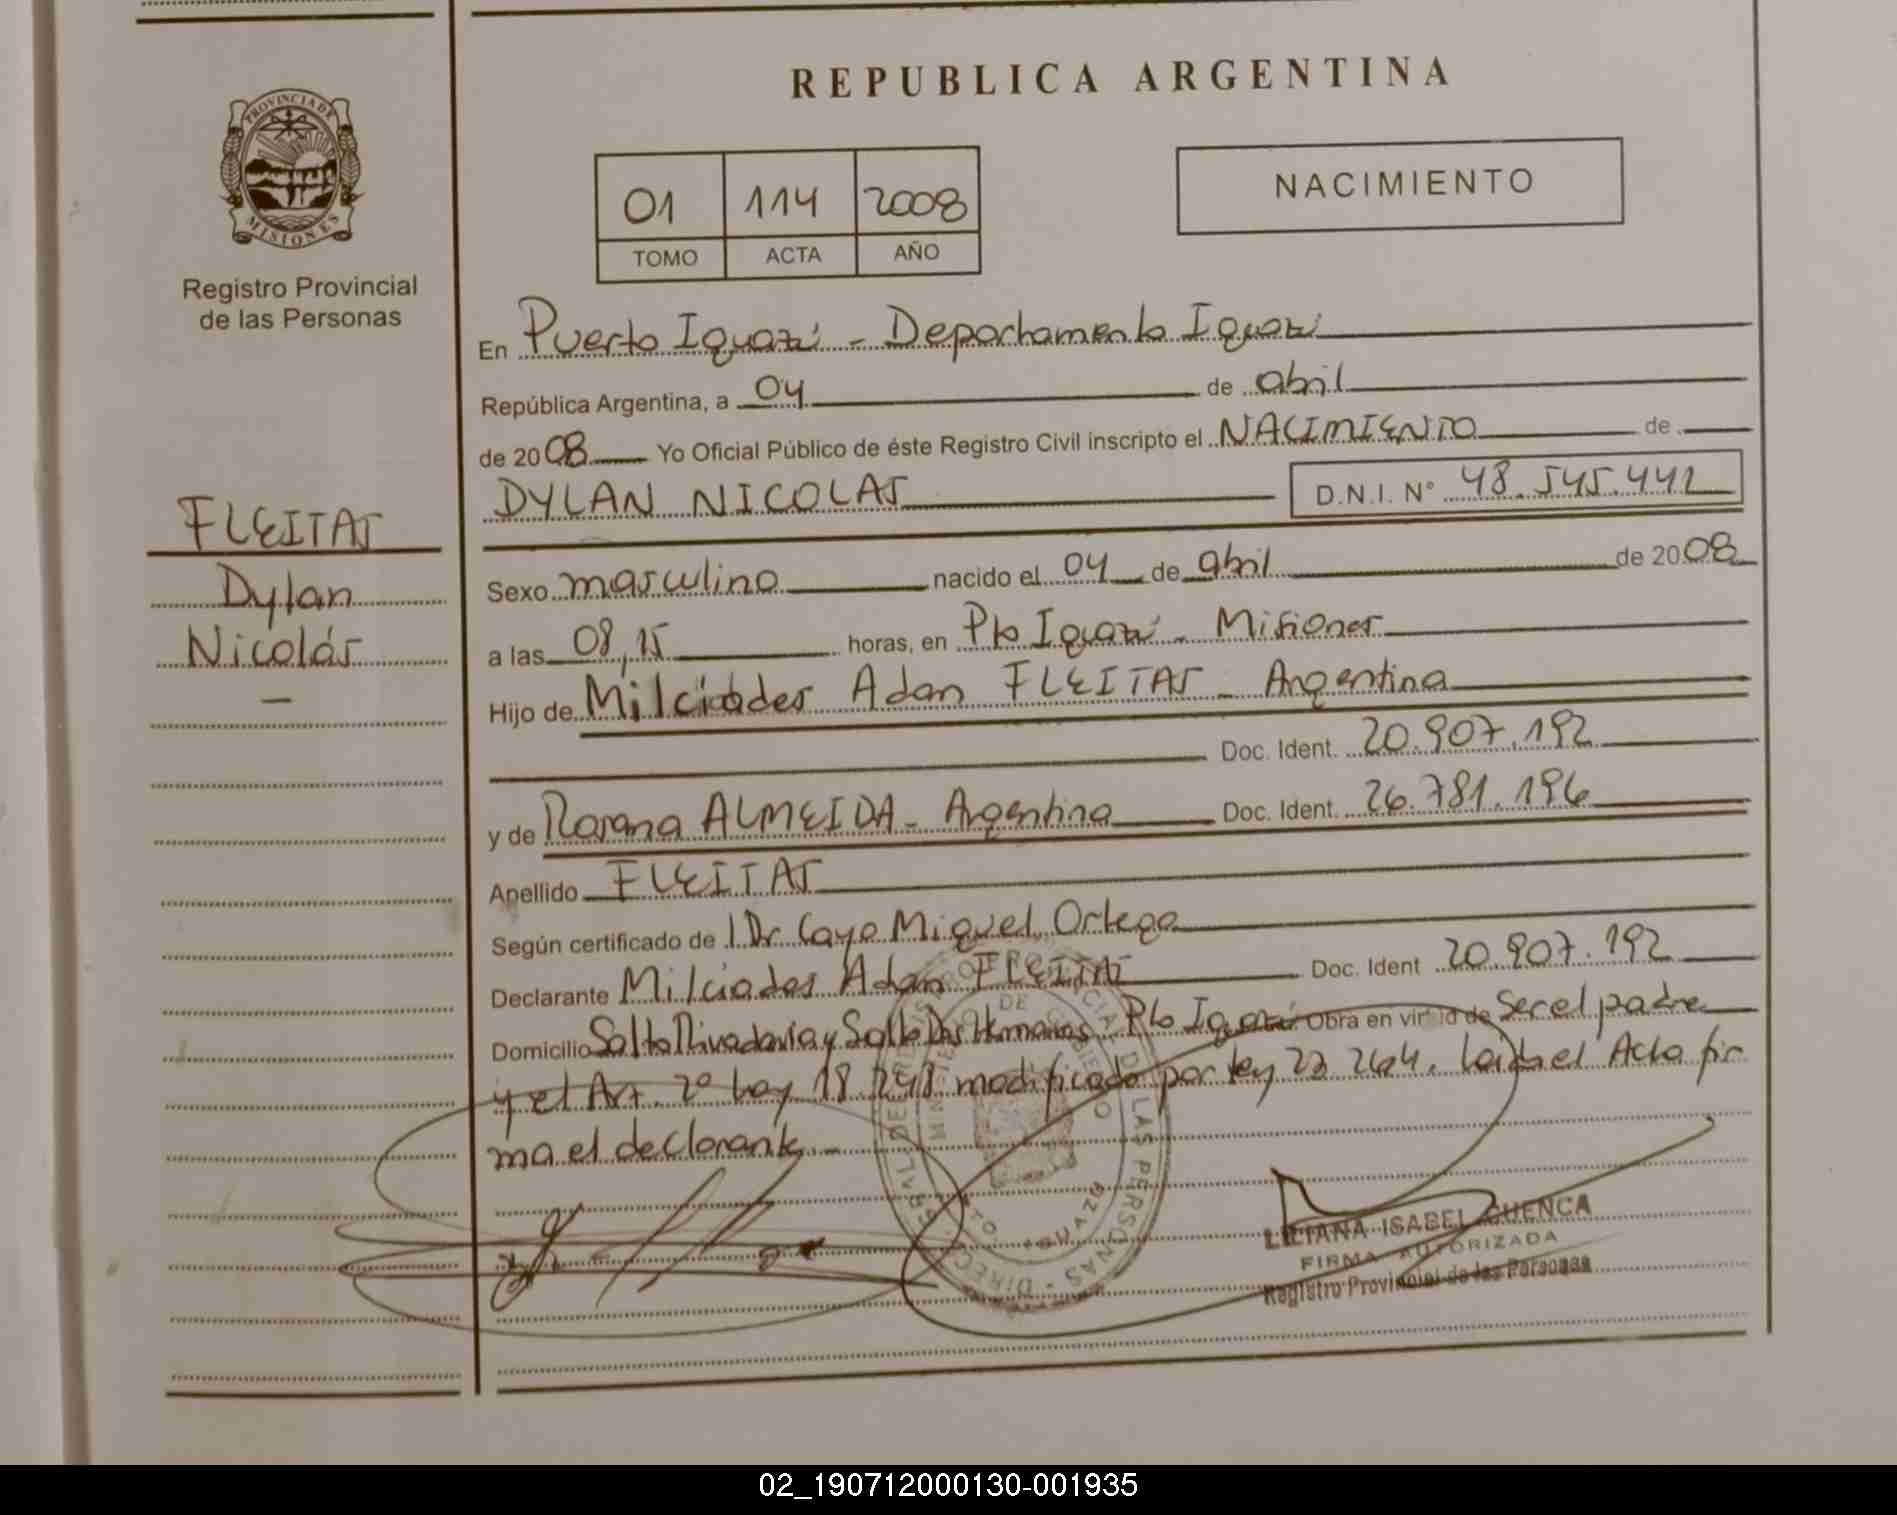 REPUBLICA ARGENTINA
PROVINCIA DE
MISIONES
Registro Provincial
de las Personas
01 114 2008
TOMO ACTA AÑO
NACIMIENTO
En Puerto Iguazú - Departamento Iguazú
República Argentina, a 04 de abril
de 2008 Yo Oficial Público de éste Registro Civil inscripto el NACIMIENTO de
DYLAN NICOLAS D.N.I. N° 48.545.442
FLEITAS
Dylan
Nicolás
—
Sexo masculino nacido el 04 de abril de 2008
a las 08,15 horas, en Pto Iguazú - Misiones
Hijo de Milcíades Adan FLEITAS - Argentina
Doc. Ident. 20.907.192
y de Roxana ALMEIDA - Argentina Doc. Ident. 26.781.196
Apellido FLEITAS
Según certificado de 1 Dr Cayo Miguel Ortega
Declarante Milciades Adan FLEITAS Doc. Ident 20.907.192
Domicilio Salto Rivadavia y Salto Dos Hermanas - Pto Iguazú Obra en virtud de ser el padre
y el Art. 2º Ley 18.248 modificado por ley 23.264. Leída el Acta fir
ma el declarante.-
LILIANA ISABEL CUENCA
FIRMA AUTORIZADA
Registro Provincial de las Personas
02_190712000130-001935